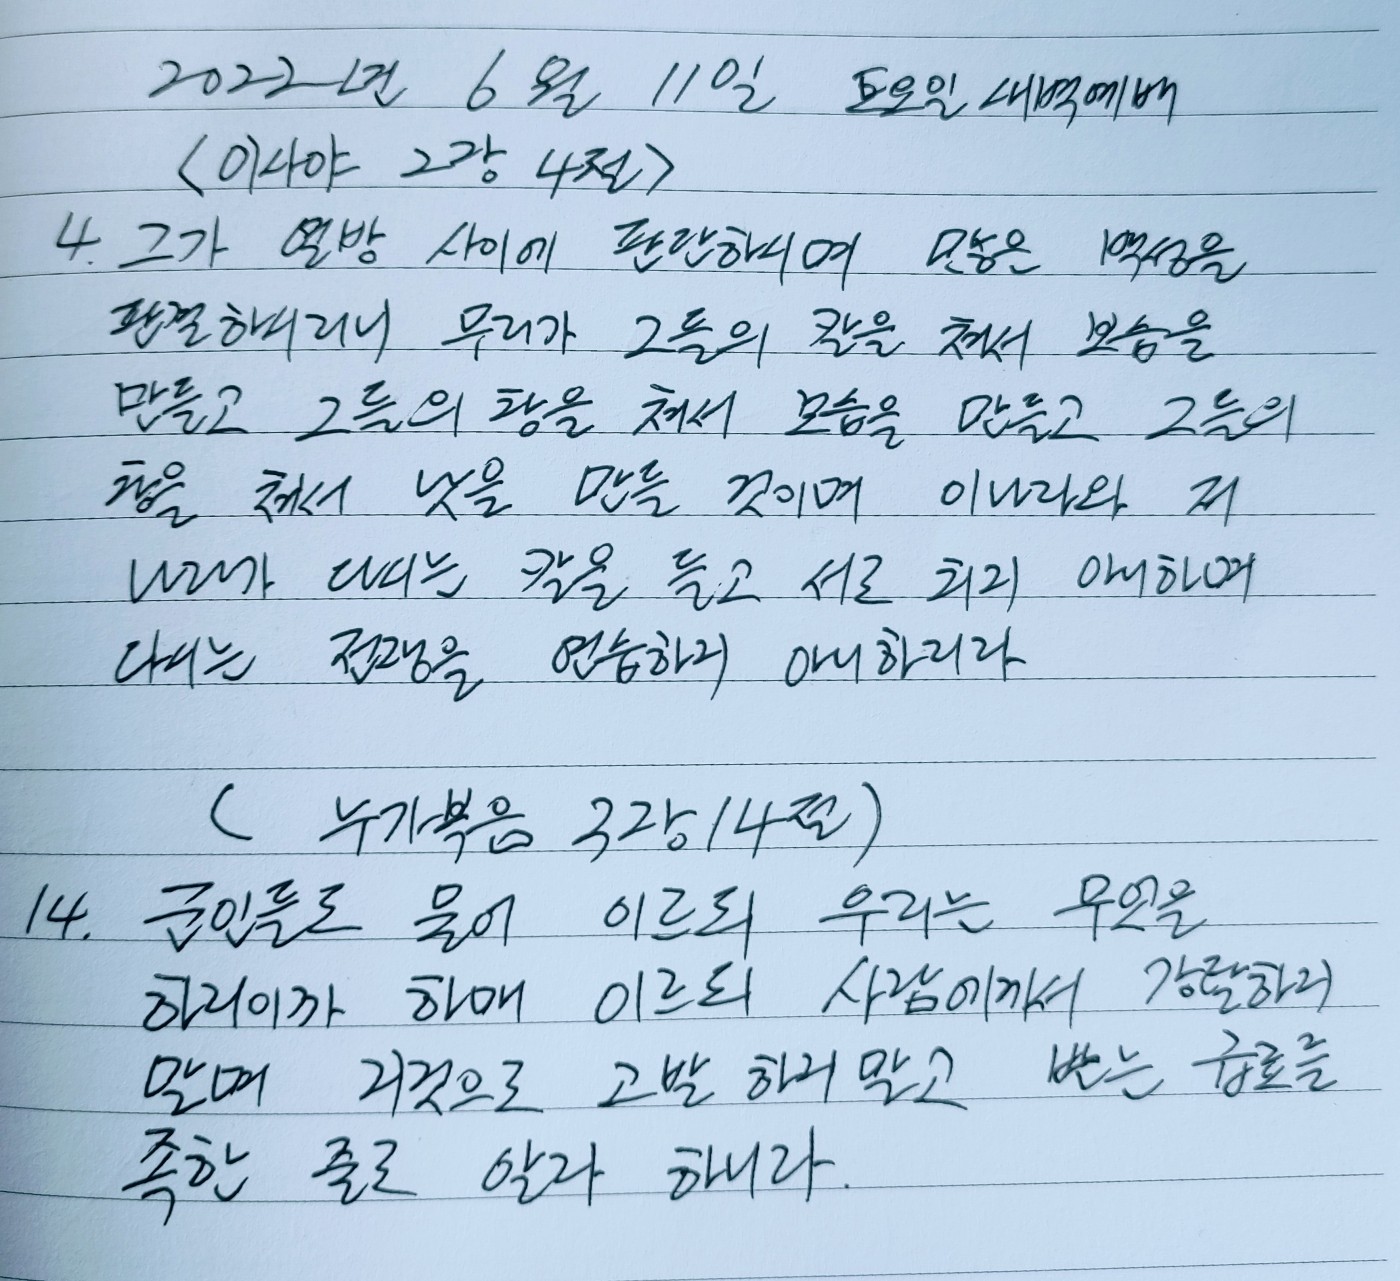 2022년 6월 11일 토요일 새벽예배
<이사야 2장 4절>
4. 그가 열방 사이에 판단하시며 많은 백성을
판결하시리니 무리가 그들의 칼을 쳐서 보습을
만들고 그들의 창을 쳐서 보습을 만들고 그들의
창을 쳐서 낫을 만들 것이며 이나라와 저
나라가 다시는 칼을 들고 서로 치지 아니하며
다시는 전쟁을 연습하지 아니하리라
( 누가복음 3장 14절)
14. 군인들도 물어 이르되 우리는 무엇을
하리이까 하매 이르되 사람에게서 강탈하지
말며 거짓으로 고발 하지 말고 받는 급료를
족한 줄로 알라 하니라.